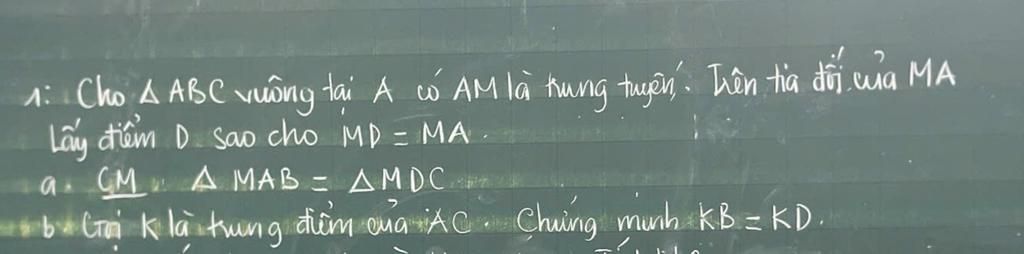 1: Cho △ ABC vuông tại A có AM là trung tuyến. Trên tia đối của MA
Lấy điểm D sao cho MD = MA.
a. CM △ MAB = △ MDC
b Gọi K là trung điểm của AC. Chứng minh KB = KD.